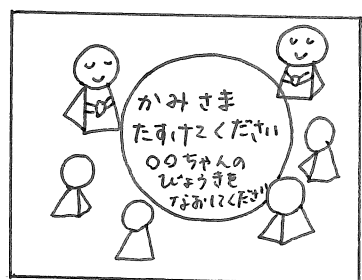 かみさま
たすけてください
○○ちゃんの
びょうきを
なおしてください